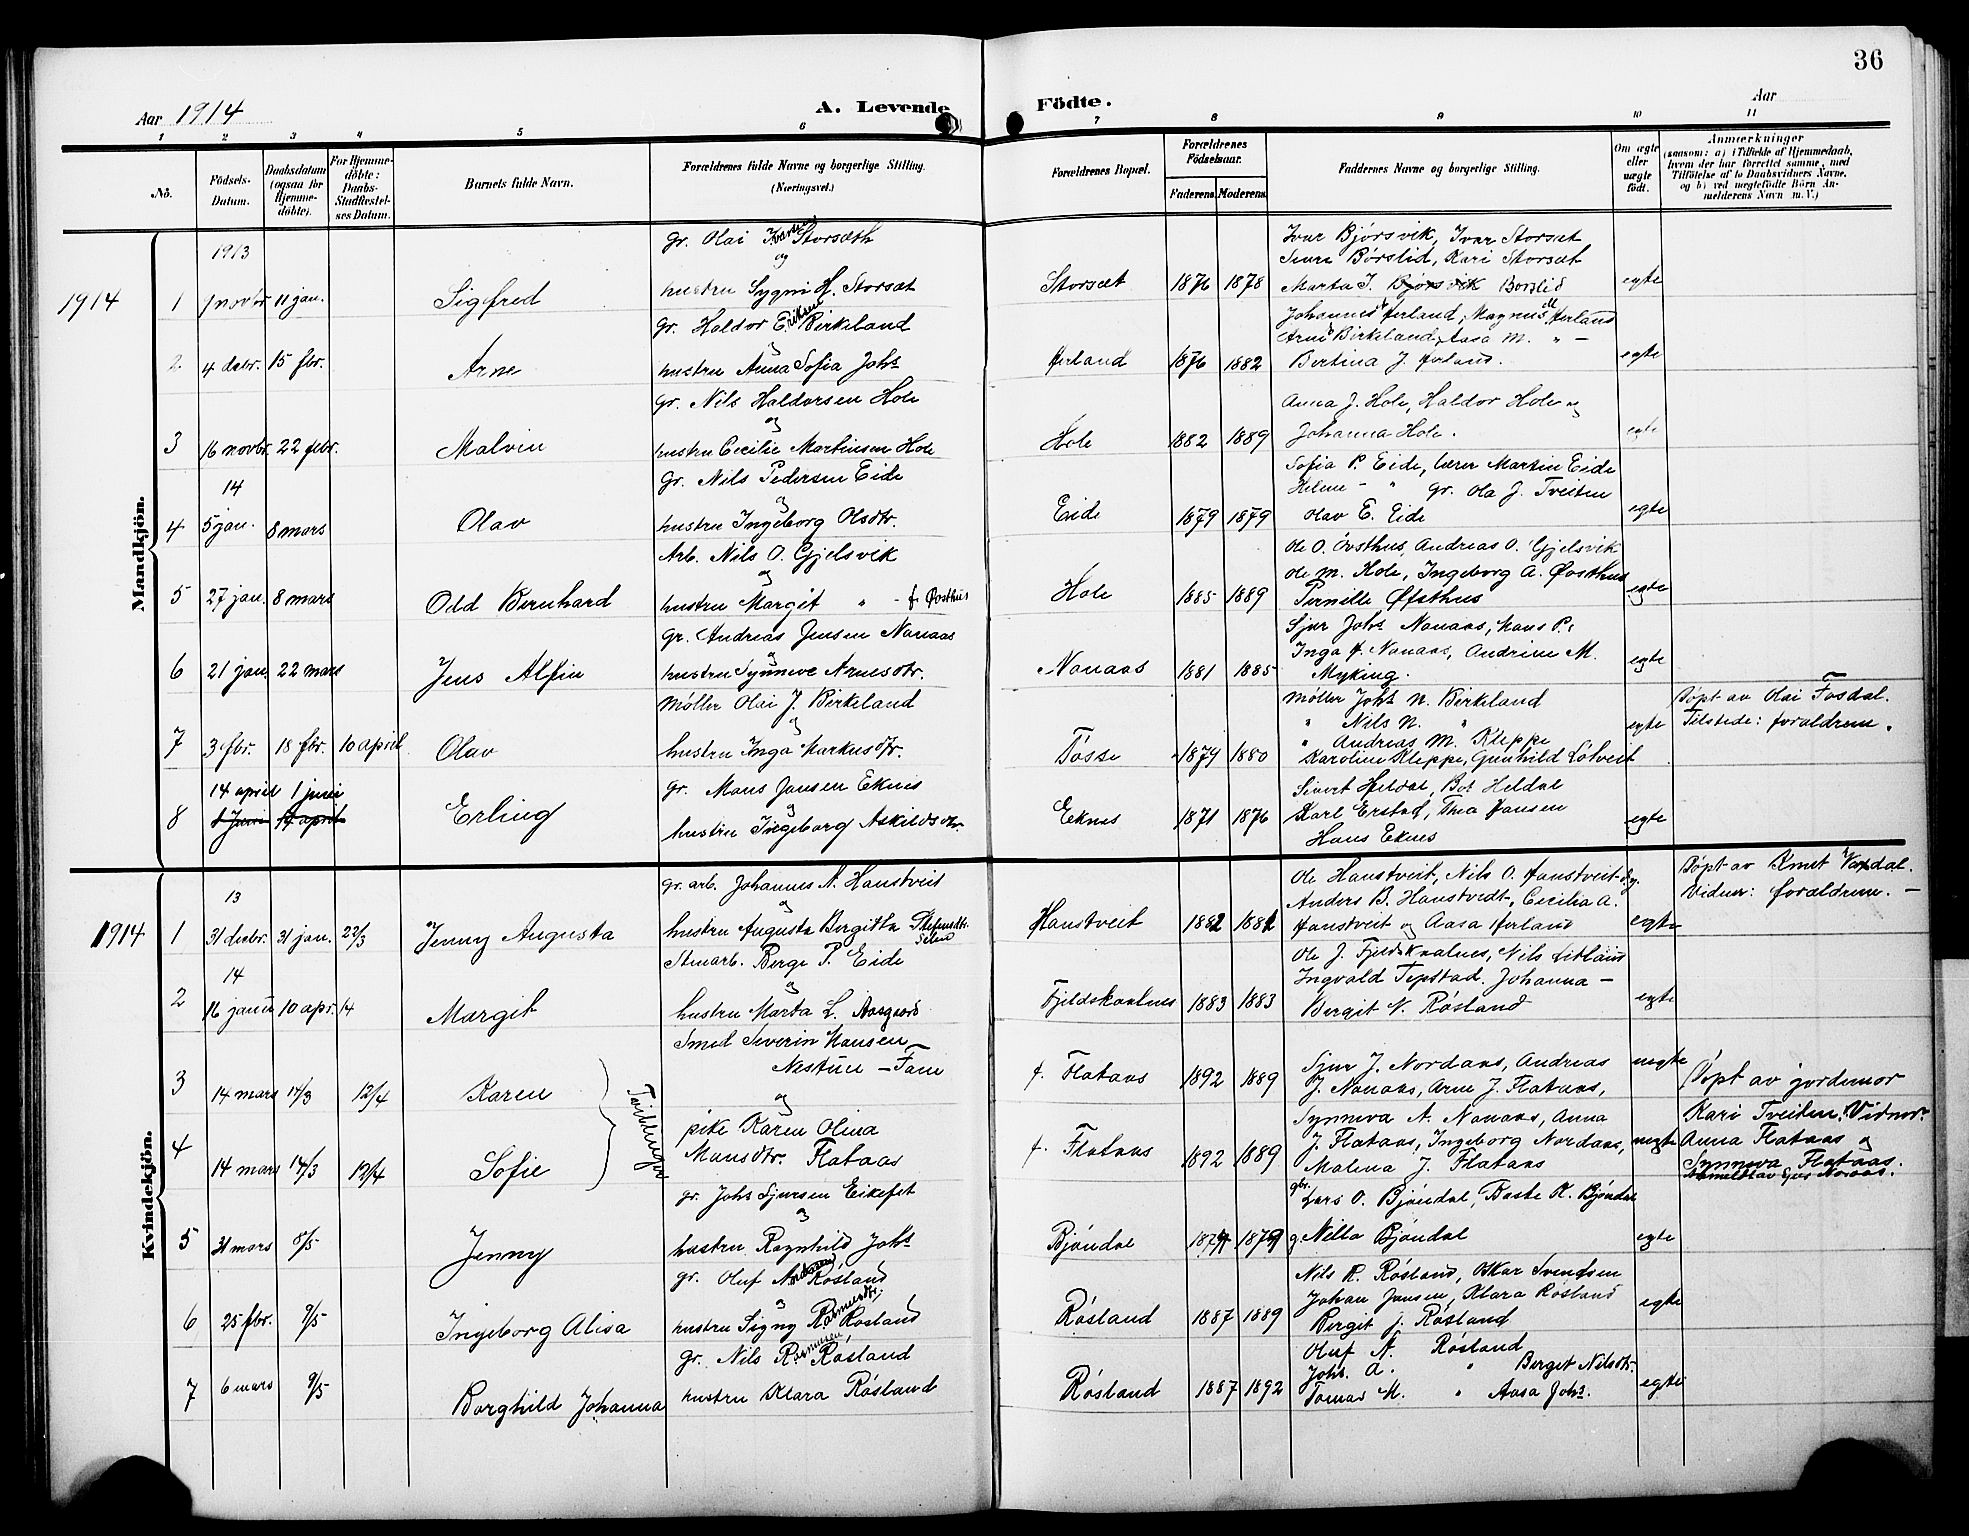 36
Aar 1914
A. Levende Födte.
Aar
1 2 3 4 5 6 7 8 9 10 11
No.
Födsels-Datum.
Daabsdatum (ogsaa for Hjemmedöbte).
For Hjemmedöbte: Daabs-Stadfæstelses Datum.
Barnets fulde Navn.
Forældrenes fulde Navne og borgerlige Stilling. (Næringsvei.)
Forældrenes Bopæl.
Forældrenes Födselsaar.
Faderens. Moderens.
Faddernes Navne og borgerlige Stilling.
Om ægte eller uægte födt.
Anmærkninger
(saasom: a) i Tilfælde af Hjemmedaab, hvem der har forrettet samme, med Tilföielse af to Daabsvidners Navne. og b) ved uægtefödte Börn Anmelderens Navn m.V.)
Mandkjön.
1914
1913
1 1 novbr 11 jan. Sigfred
gr. Olai Storsæth
og
hustru Sygni H. Storsæt
Storsæt 1876 1878
Ivar Bjørsvik, Ivar Storsæt
Børslid, Kari Storsæt
Marta I. Bjørsvik Børslid
egte
2 4 debr. 15 fbr. Arne
gr. Haldor Eriksen Birkeland
og
hustru Anna Sofia Johs
Herland 1876 1882
Johannes Herland, Magnus Herland
Arne Birkeland, Aasa M. " -
Bertina J. Herland.
egte
3 16 novbr. 22 febr. Malvin
gr. Nils Haldorsen Hole
og
hustru Cecilie Martinsen Hole
Hole 1882 1889
Anna J. Hole, Haldor Hole og
Johanna Hole.
egte
14
4 5 jan. 8 mars Olav
gr. Nils Pedersen Eide
og
hustru Ingeborg Olsdtr.
Eide 1879 1879
Sofia P. Eide, lærer Martin Eide
Helene - " gr. Ola J. Tveiten
Olav E. Eide
egte
5 27 jan. 8 mars Odd Bernhard
Arb. Nils O. Gjelsvik
og
hustru Margit " - f. Øvsthus
Hole 1885 1889
Ole O. Øvsthus, Andreas O. Gjelsvik
Ole M. Hole, Ingeborg A. Øvsthus
Pernille Øfsthus
egte
6 21 jan. 22 mars Jens Alfin
gr. Andreas Jensen Nonaas
og
hustru Synneve Arnesdtr.
Nonaas 1881 1885
Sjur Johs Nonaas, Hans P.
Inga H. Nonaas, Andrine M.
Myking.
egte
7 3 fbr. 18 fbr. 10 april. Olav
Møller Olai J. Birkeland
og
hustru Inga Markusdtr.
Tøsse 1879 1880
Møller Johs N. Birkeland
" Nils N. "
" Andreas M. Kleppe
Karoline Kleppe, Gunhild Løtveit
egte
Døpt av Olai Fosdal.
Tilstede: forældrene.
8 14 april 1 juni Erling
1 Juni 14 april
gr. Mons Jansen Eknes
og
hustru Ingeborg Askildsdtr.
Eknes 1871 1876
Sivert Heldal, Bet Heldal
Karl Erstad, Thea Hansen
Hans Eknes
egte
Kvindekjön.
1914
13
1 31 decbr. 31 jan. 22/3 Jenny Augusta
gr. arb. Johannes N. Hanstveit
og
hustru Augusta Bergitta
Hanstveit 1882 1881
Ole Hanstveit, Nils O. Hanstveit
Anders B. Hanstvedt, Cecilia A.
Hanstveit og Aasa Herland
egte
Døpt av Knut Vaxdal.
Vidner: forældrene. -
14
2 16 januar 10 apr. 14 Margit
Stenarb. Berge P. Eide
og
hustru Marta L. Aasgaard
Fjeldskaalnes 1883 1883
Ole J. Fjeldskaalnes, Nils Litlaas
Ingvald Tepstad. Johanna -
Bergit N. Røsland
egte
3 14 mars 14/3 12/4 Karen
Smed Severin Hansen
Nestun - Fane
og
f. Flataas 1892 1889
Sjur J. Nordaas, Andreas
J. Nonaas, Arne J. Flataas,
uegte
Døpt av jordemor
Tvillinger
4 14 mars 14/3 12/4 Sofie
pike Karen Olina
Monsdtr. Flataas
f. Flataas 1892 1889
Synneva A. Nonaas, Anna
J. Flataas, Ingeborg Nordaas,
Malena J. Flataas
uegte
Kari Tveiten. Vidner:
Anna Flataas og
Synneva Flataas.
5 31 mars 8/5 Jenny
gr. Johs Sjursen Eikefet
og
hustru Ragnhild Johs
Bjøndal 1879
gbr. Lars O. Bjøndal, Baste K. Bjøndal
g. Nilla Bjøndal
egte
6 25 fbr. 9/5 Ingeborg Alisa
gr. Oluf Røsland
og
hustru Signy Rasmusdtr. Røsland
Røsland 1887 1889
Nils R. Røsland, Oskar Svendsen
Johan Jansen, Klara Røsland
Bergit J. Røsland
egte
7 6 mars 9/5 Borghild Johanna
gr. Nils Rasmusen, Røsland
hustru Klara Røsland
Røsland 1887 1892
Oluf A. Røsland
Johs. A. " Berget Nilsdtr.
Tomas K. " Aasa Johs.
egte